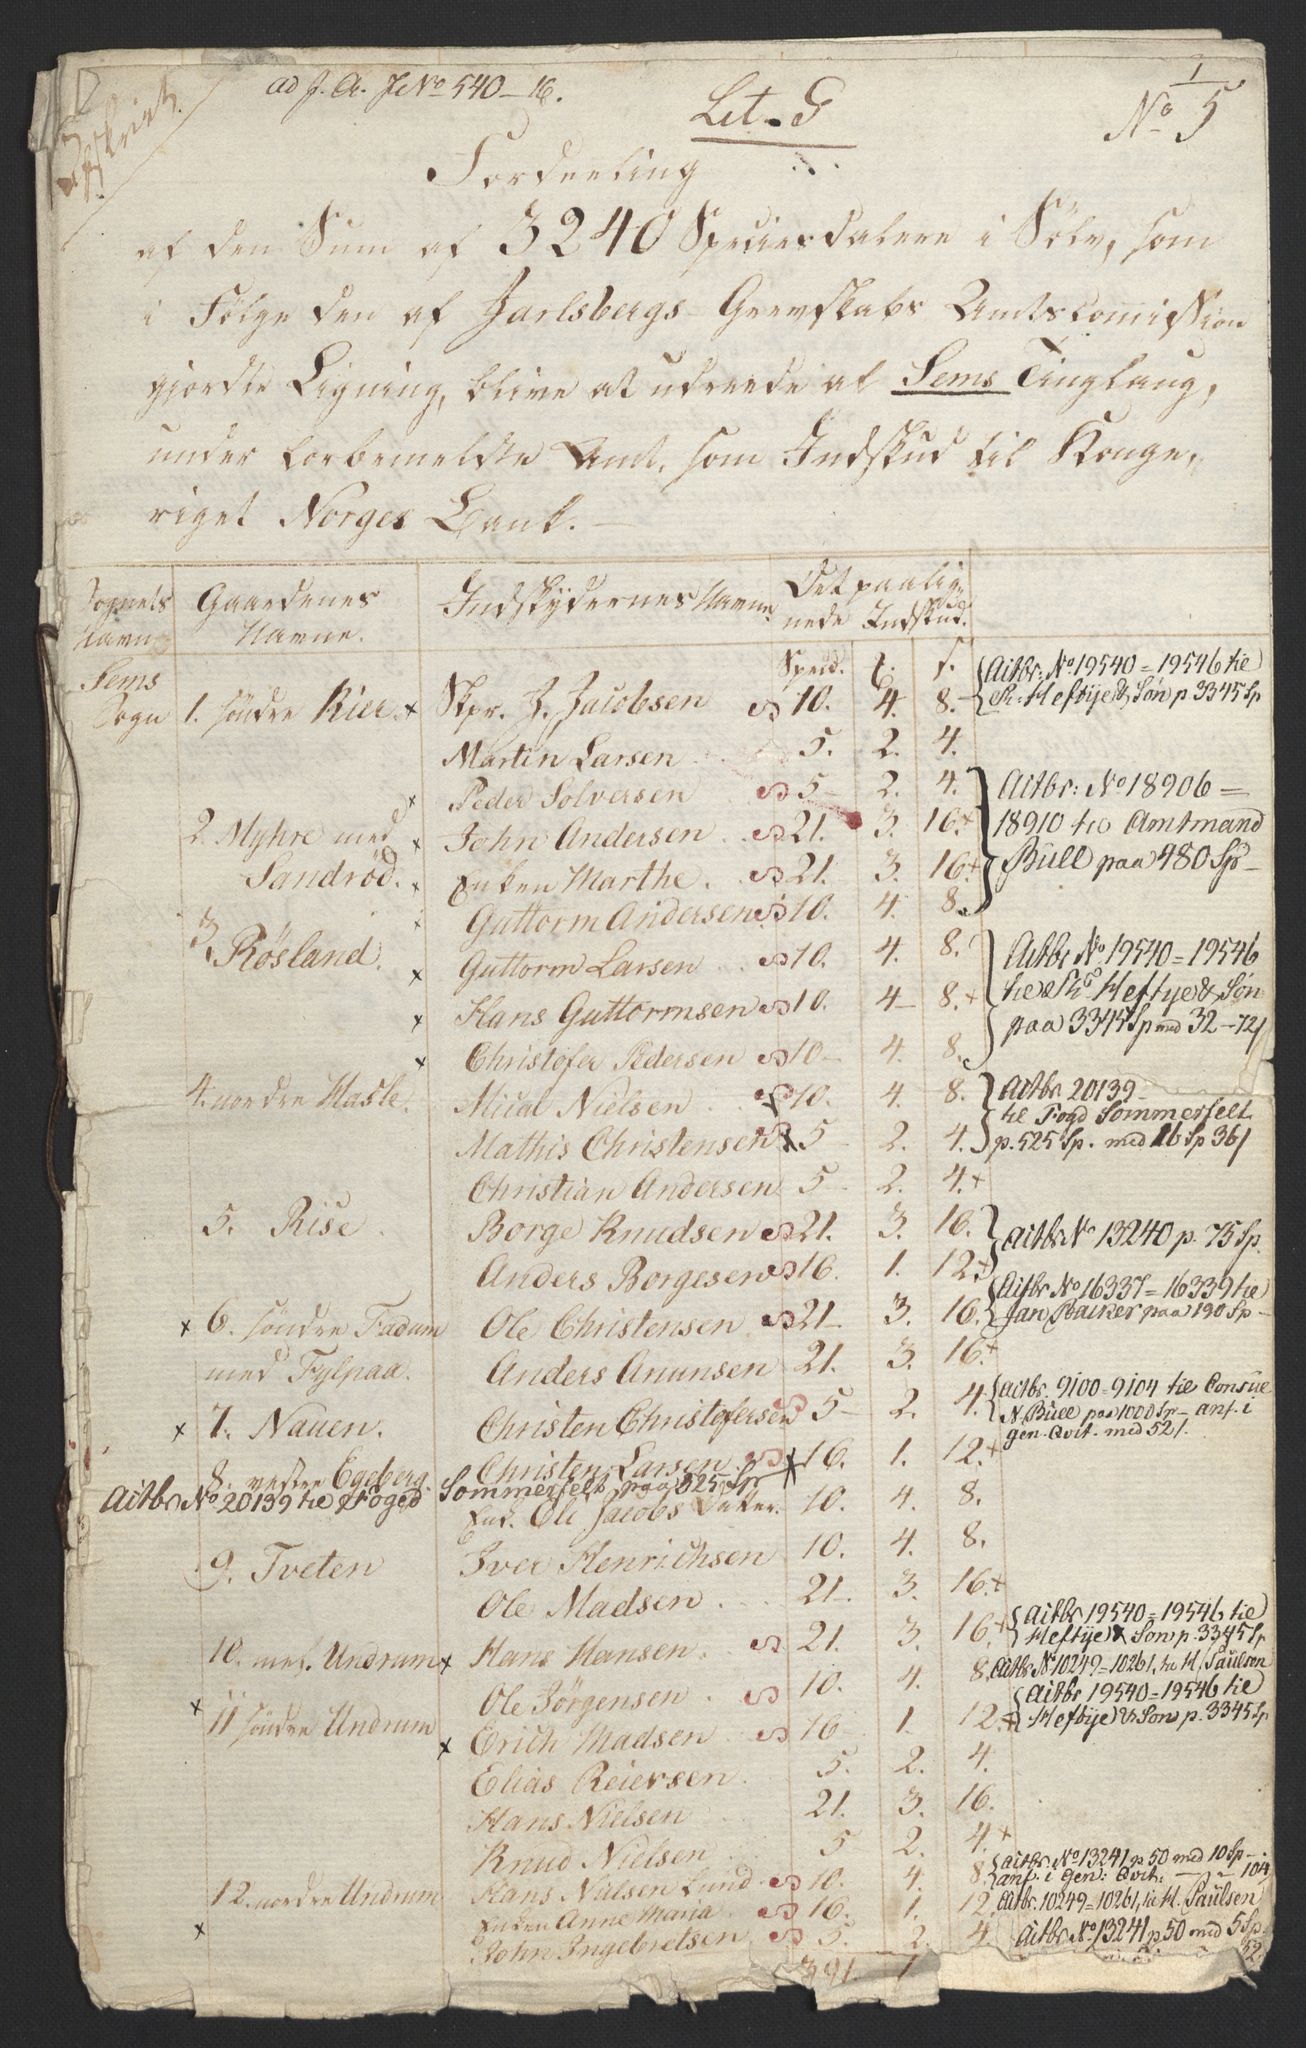 ad J. A. J No 540-16.
1
Lit. G
No 5
Fordeeling
af den Sum af 3240 Speciesdalere i Sölv, som
i Følge den af Jarlsbergs Grevskabs Amtscomission
gjordte Ligning, blive at udreede af Sems Tinglaug,
under forbemeldte Amt, som Indskud til Konge-
riget Norges Bank.
Sognets Gaardenes Indskydernes Navne. Det paalig-
Navn Navne. nede Indskud.
Specd. f.
Sems
Sogn 1. söndre Kier. x Skpr. J. Jacobsen 10. 4. 8. Aitbr: No 19540=19546 til
Heftye & Søn p 3345 Sp
Martin Larsen 5. 2. 4.
x Peder Solversen 5 2. 4. Aitbr: No 18906=
2 Myhre med x John Andersen 21. 3. 16.+ 18910 til Amtmand
Sandröd. x Enken Marthe. 21. 3. 16+ Bull paa 480 Sp
Guttorm Andersen 10. 4. 8.
3. Rösland. x Guttorm Larsen 10. 4. 8. Aitbr No 19540=19546
x Hans Guttormsen 10. 4 8.+ til Heftye & Søn
paa 3345 Sp med 32-72/
x Christofer Pedersen 10 4. 8.
4. nordre Hasle. Micol Nielsen 10. 4. 8. Aitbr 20139
til Fogd Sommerfelt
Mathis Christensen x 5 2. 4. p. 525 Sp. med 16 Sp 36/
Christian Andersen 5 2. 4.+
5. Rise. Borge Knudsen 21. 3. 16. Aitbr No 13240 p. 75 Sp.
Anders Borgesen 16. 1. 12+ Aitbr No 16337=16339 til
x 6. söndre Fadum Ole Christensen 21 3. 16. paa 190 Sp
med Fylpaa. Anders Anunsen 21. 3. 16.+
x 7. Nauen. Christen Christofersen 5 2. 4. Aitbr. 9100=9104 til Consul
N. Bull paa 1000 Sp anf. i
gen. Qvit. med 52/.
8. vestre Egeberg. Christen Larsen x 16. 1. 12+
Aitbr No 20139 til Foged Sommerfelt paa 525 Sp
Enk. Ole Jacobs Datter. 10. 4. 8.
9. Tveten Iver Henrichsen 10. 4. 8.
Ole Madsen 21. 3. 16.+
10. mel. Undrum x Hans Hansen. 21. 3. 16+ Aitbr 19540=19546 til
Heftye & Søn p. 3345 Sp
x Ole Jörgensen 10. 4. 8. Aitbr No 10249=10261, til H. Paulsen
11 söndre Undrum x Erich Madsen 16 1. 12.+ Aitbr 19540=19546 til
Heftye & Søn p. 3345 Sp
Elias Reiersen. 5. 2. 4.
Hans Nielsen 21. 3. 16.
Knud Nielsen 5 2. 4.+
12. nordre Undrum Hans Nielsen Lund 10. 4. 8. Aitbr No 13241 p 50 med 10 Sp
anf. i Gen: Qvit: 104/
Enken Anne Maria 16. 1. 12. Aitbr. 10249=10261, til H. Paulsen
x John Ingebretsen 5. 2. 4. Aitbr No 13241 p 50 med 5 Sp
52.
391. 1